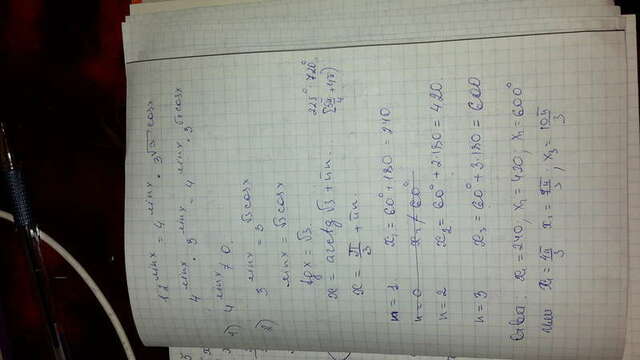 12^sinx = 4^sinx · 3^√3cosx
4^sinx · 3^sinx = 4^sinx · 3^√3cosx
1) 4^sinx ≠ 0
2) 3^sinx = 3^√3cosx
sinx = √3cosx
tgx = √3.
x = arctg√3 + πn. 225° 720°
x = π/3 + πn. [5π/4 + 4π)
n=1. x₁ = 60° + 180 = 240
n=0 x = 60°
n=2 x₂ = 60° + 2·180 = 420
n=3 x₃ = 60° + 3·180 = 600
x₁ = 240, x₂ = 420; x₃ = 600°
или x₁ = 4π/3 x₂ = 7π/3, x₃ = 10π/3